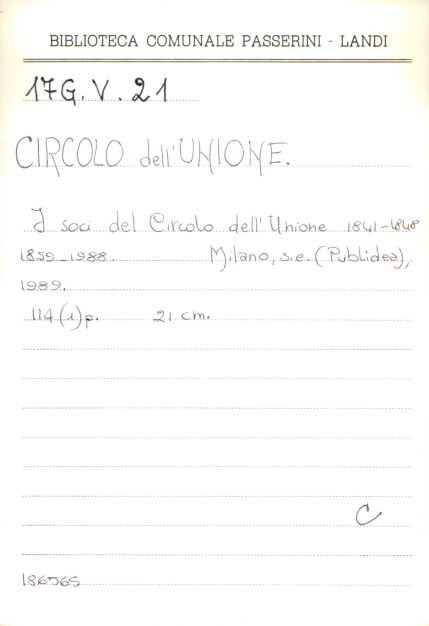 BIBLIOTECA COMUNALE PASSERINI - LANDI
17G.V.21
CIRCOLO dell'UNIONE.
I soci del Circolo dell'Unione 1841-1848
1859-1988. Milano, s.e. (Publidea),
1989.
114 (1) p. 21 cm.
C
186565